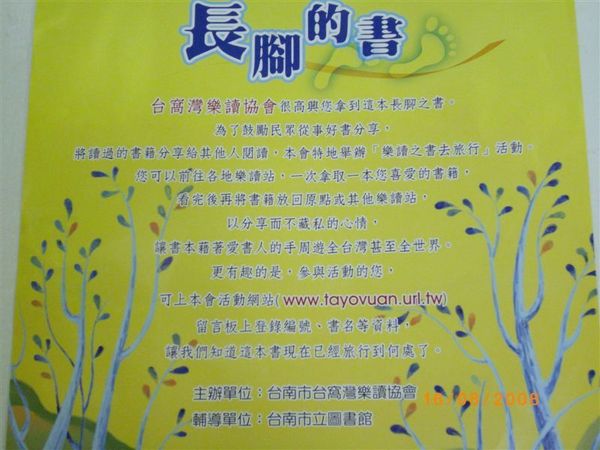 長腳的書
台窩灣樂讀協會很高興您拿到這本長腳之書。
為了鼓勵民眾從事好書分享，
將讀過的書籍分享給其他人閱讀，本會特地舉辦「樂讀之書去旅行」活動。
您可以前往各地樂讀站，一次拿取一本您喜愛的書籍，
看完後再將書籍放回原點或其他樂讀站，
以分享而不藏私的心情，
讓書本藉著愛書人的手周遊全台灣甚至全世界。
更有趣的是，參與活動的您，
可上本會活動網站(www.tayovuan.url.tw)
留言板上登錄編號、書名等資料，
讓我們知道這本書現在已經旅行到何處了。
主辦單位：台南市台窩灣樂讀協會
輔導單位：台南市立圖書館